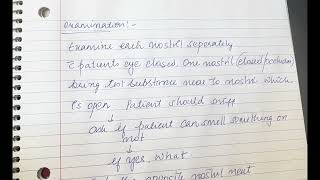 examination:-
Examine each nostril seperately
c̄ patients eye closed. One nostril (closed/
bring test substance near to nostril which
is open Patient should sniff
ask if patient can smell something or
not
if yes. what
the opposite nostril next